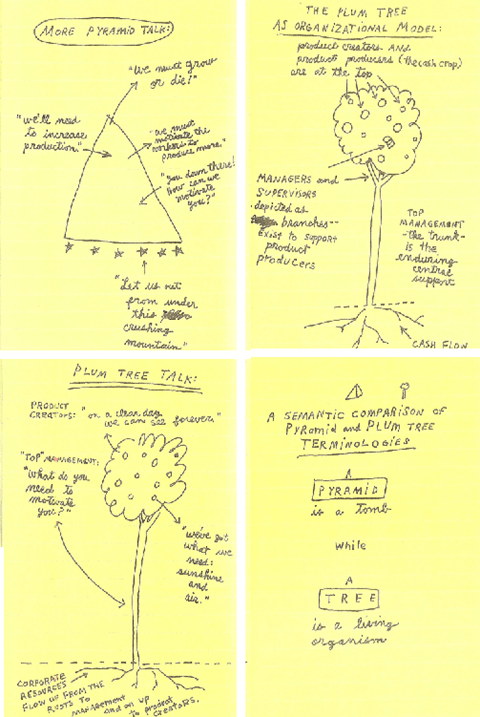 MORE PYRAMID TALK:
"We must grow
or die!"
"we'll need
to increase
production."
"We must
motivate the
workers to
produce more."
"you down there!
How can we
motivate
you?"
"Let us out
from under
this
crushing
mountain."
THE PLUM TREE
AS ORGANIZATIONAL MODEL:
product creators AND
product producers (the cash crop)
are at the top
MANAGERS and
SUPERVISORS
depicted as
branches--
EXIST to SUPPORT
PRODUCT
PRODUCERS
TOP
MANAGEMENT
-the trunk-
is the
enduring
central
support
CASH FLOW
PLUM TREE TALK:
PRODUCT
CREATORS: "on a clear day
we can see forever."
"TOP" MANAGEMENT:
"What do you
need to
motivate
you?"
"we've got
what we
need:
sunshine
and
air."
CORPORATE
RESOURCES
FLOW UP FROM THE
ROOTS TO
management
and on up
to product
creators.
A SEMANTIC COMPARISON OF
PYRAMID and PLUM TREE
TERMINOLOGIES
A
PYRAMID
is a tomb
while
A
TREE
is a living
organism